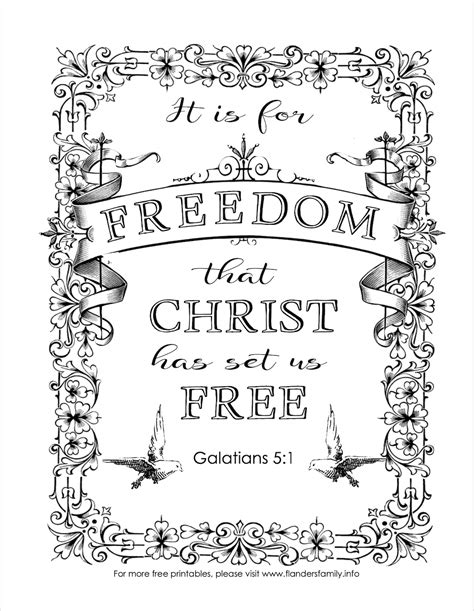 It is for
FREEDOM
that
CHRIST
has set us
FREE
Galatians 5:1
For more free printables, please visit www.flandersfamily.info